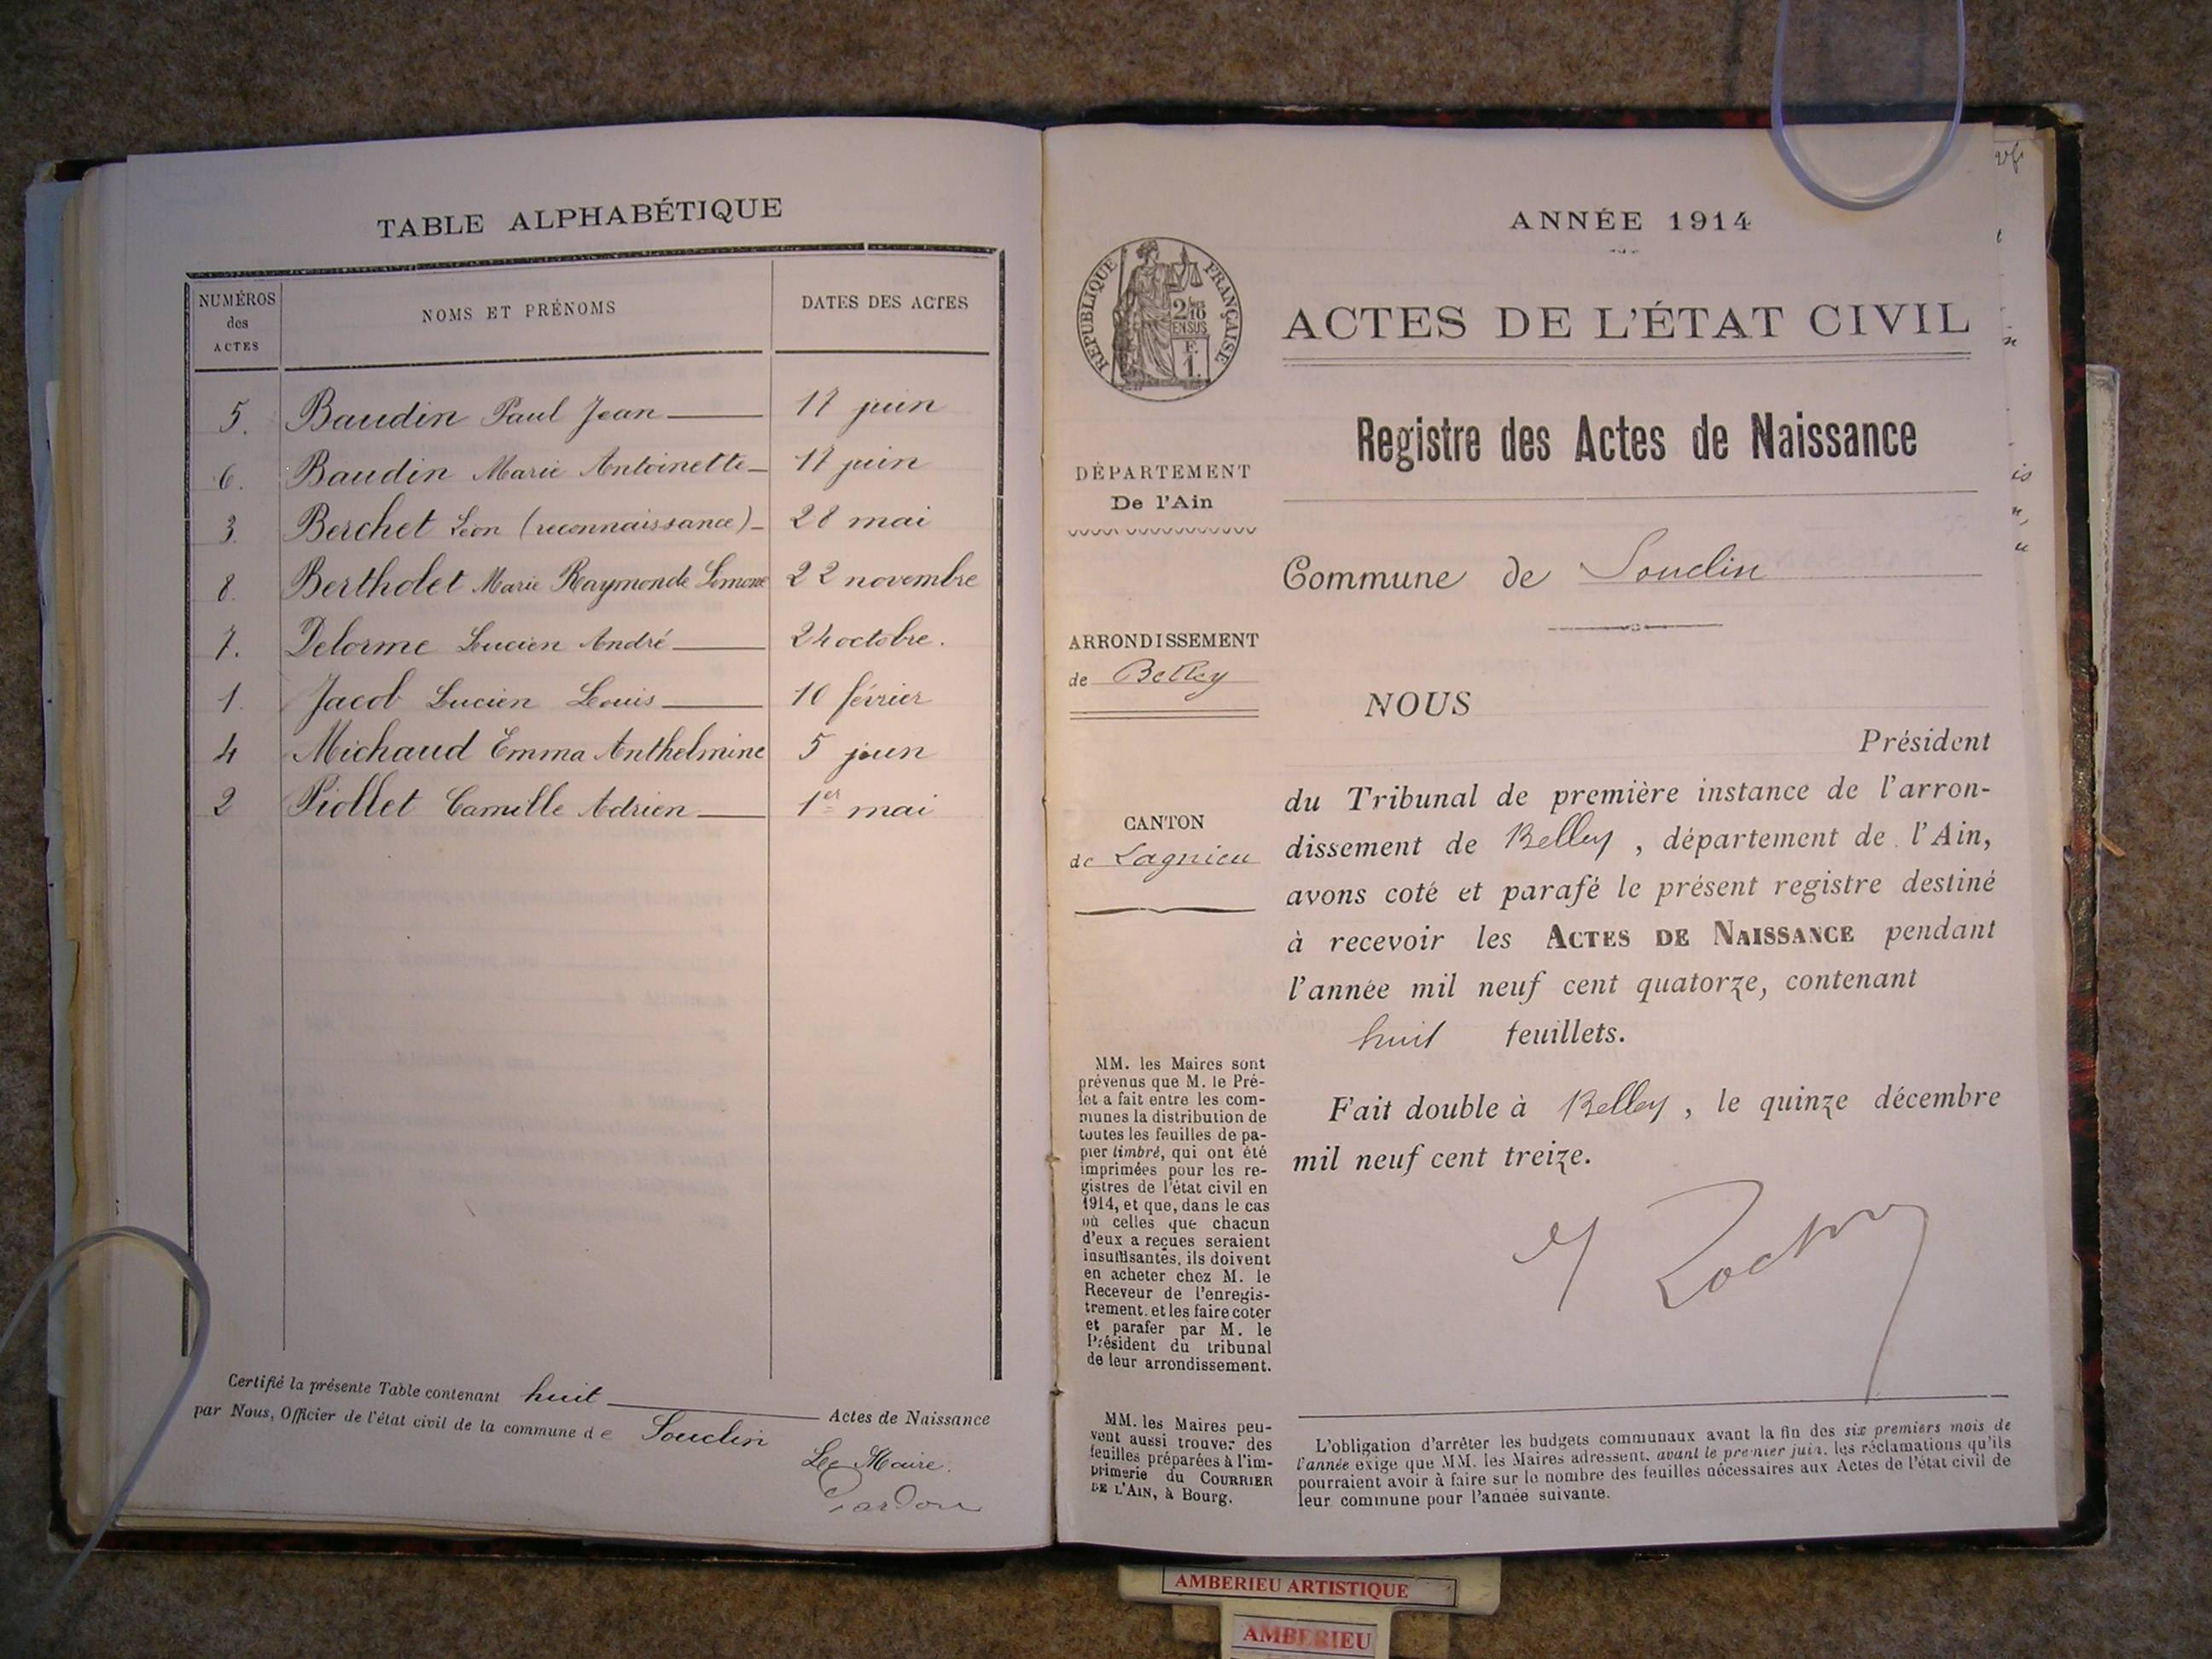 TABLE ALPHABÉTIQUE
NUMÉROS des ACTES
NOMS ET PRÉNOMS
DATES DES ACTES
5. Baudin Paul Jean 17 juin
6. Baudin Marie Antoinette 17 juin
3. Berchet Léon (reconnaissance) 28 mai
8. Bertholet Marie Raymonde Simone 22 novembre
7. Delorme Lucien André 24 octobre.
1. Jacob Lucien Louis 10 février
4 Michaud Emma Anthelmine 5 juin
2 Piollet Camille Adrien 1er mai
Certifié la présente Table contenant huit Actes de Naissance
par Nous, Officier de l'état civil de la commune de Souclin
Le Maire.
ANNÉE 1914
RÉPUBLIQUE FRANÇAISE
2/10
EN SUS
F.
1.
ACTES DE L'ÉTAT CIVIL
Registre des Actes de Naissance
DÉPARTEMENT
De l'Ain
Commune de Souclin
ARRONDISSEMENT
de Belley
CANTON
de Lagnieu
NOUS
Président
du Tribunal de première instance de l'arron-
dissement de Belley, département de l'Ain,
avons coté et parafé le présent registre destiné
à recevoir les ACTES DE NAISSANCE pendant
l'année mil neuf cent quatorze, contenant
huit feuillets.
Fait double à Belley, le quinze décembre
mil neuf cent treize.
MM. les Maires sont
prévenus que M. le Pré-
fet a fait entre les com-
munes la distribution de
toutes les feuilles de pa-
pier timbré, qui ont été
imprimées pour les re-
gistres de l'état civil en
1914, et que, dans le cas
où celles que chacun
d'eux a reçues seraient
insuffisantes, ils doivent
en acheter chez M. le
Receveur de l'enregis-
trement, et les faire coter
et parafer par M. le
Président du tribunal
de leur arrondissement.
MM. les Maires peu-
vent aussi trouver des
feuilles préparées à l'im-
primerie du COURRIER
DE L'AIN, à Bourg.
L'obligation d'arrêter les budgets communaux avant la fin des six premiers mois de
l'année exige que MM. les Maires adressent, avant le premier juin, les réclamations qu'ils
pourraient avoir à faire sur le nombre des feuilles nécessaires aux Actes de l'état civil de
leur commune pour l'année suivante.
AMBERIEU ARTISTIQUE
AMBERIEU